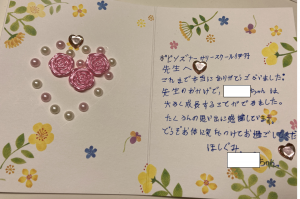 ポピンズナーサリースクール伊丹
先生へ
これまで本当にありがとうございました。
先生のおかげで、ちゃんは
大きく成長することができました。
たくさんの思い出に感謝しています。
どうぞお体に気をつけてお過ごしください
ほしぐみ
ちゃん